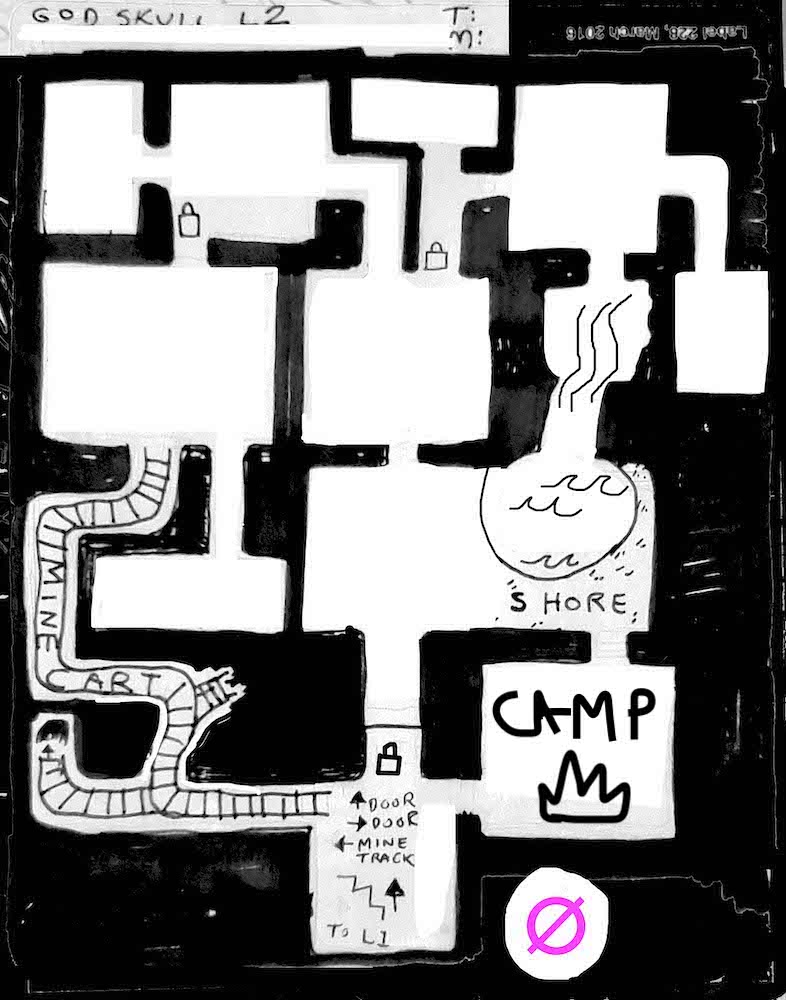 GOD SKULL L2
T:
M:
Label 228, March 2016
SHORE
MINE CART
CAMP
↑DOOR
→DOOR
←MINE
TRACK
TO L1